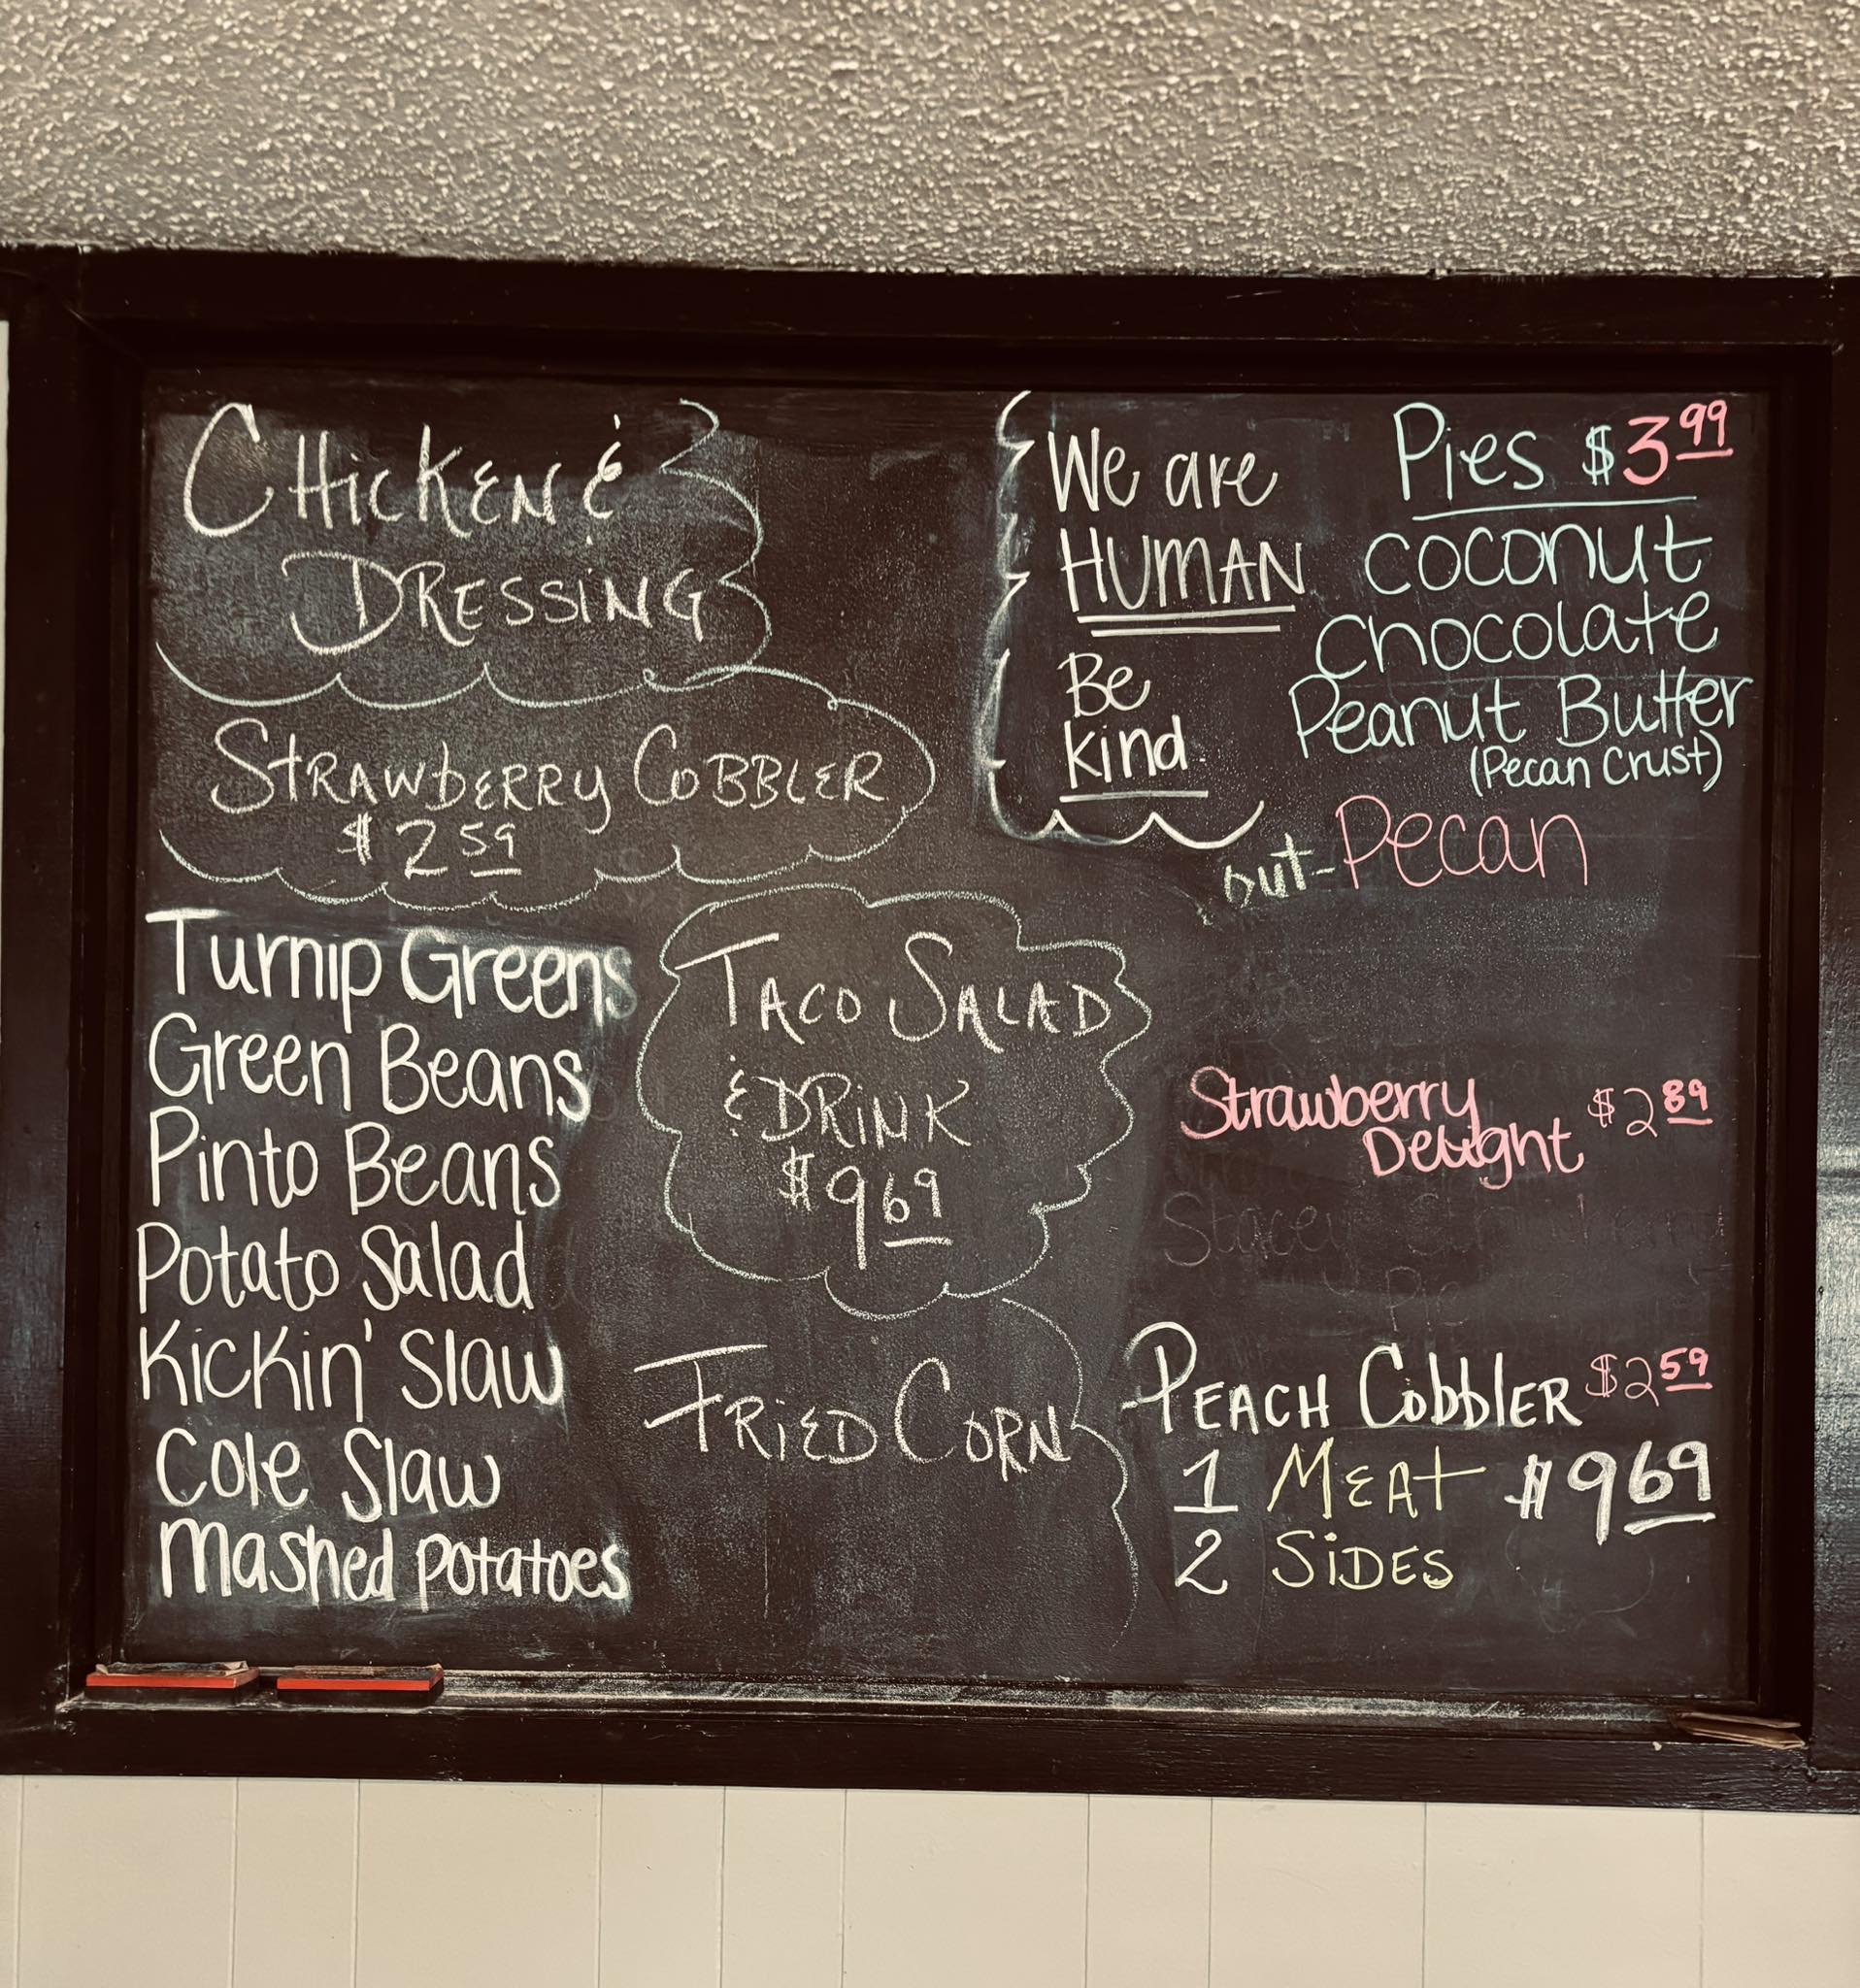 CHICKEN &
DRESSING
STRAWBERRY COBBLER
$2.59
Turnip Greens
Green Beans
Pinto Beans
Potato Salad
Kickin' Slaw
Cole Slaw
Mashed Potatoes
TACO SALAD
& DRINK
$9.69
FRIED CORN
We are
HUMAN
Be
kind
Pies $3.99
Coconut
Chocolate
Peanut Butter
(Pecan Crust)
out-Pecan
Strawberry
Delight $2.89
Stacey
Pie
PEACH Cobbler $2.59
1 MEAT $9.69
2 SIDES